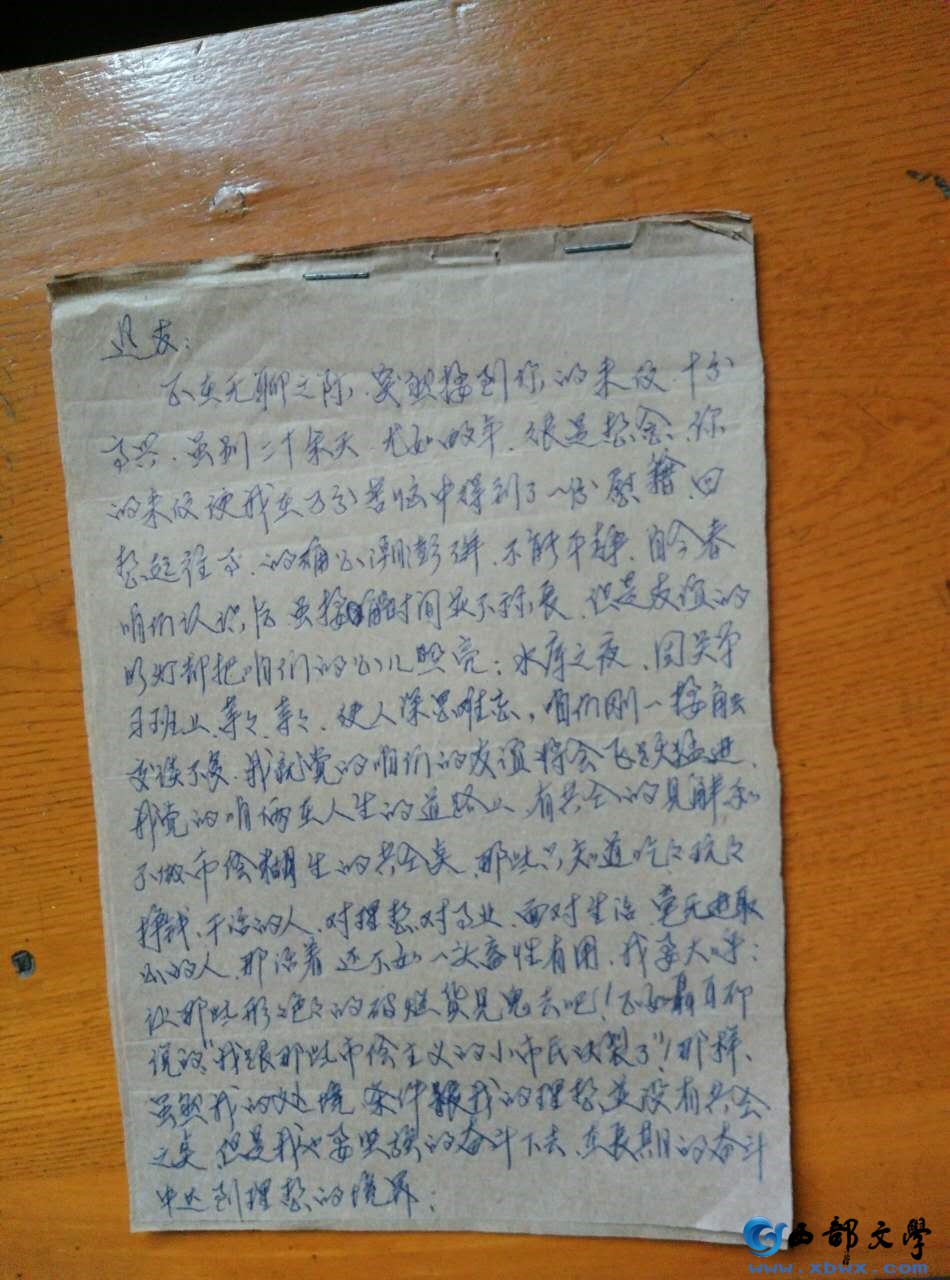 友:
正在无聊之际,突然接到你的来信,十分
高兴,虽别二十余天,尤如数年,很是想念,你
的来信使我在万分苦恼中得到了一份慰藉,回
想起往事,的确心潮澎湃,不能平静,自今春
咱们认识后,虽接触时间并不称长,但是友谊的
明灯却把咱们的心儿照亮;水库之夜,
习班上,款款,使人深思难忘,咱们刚一接触
交谈不多,我就觉的咱们的友谊将会飞跃猛进,
我觉的咱俩在人生的道路上,有共同的见解和
不做市侩糊生的共同点,那些只知道吃吃玩玩
挣钱,干活的人,对理想,对事业,面对生活,毫无进取
心的人,那活着还不如一头畜性有用,我要大呼:
让那些形形色色的破烂货见鬼去吧!!正如聂耳所
说的,"我跟那些市侩主义的小市民决裂了"!那样,
虽然我的处境、条件跟我的理想并没有共同
之点,但是我也要坚持的奋斗下去,在长期的奋斗
中达到理想的境界;
西部文學
www.xbwx.com